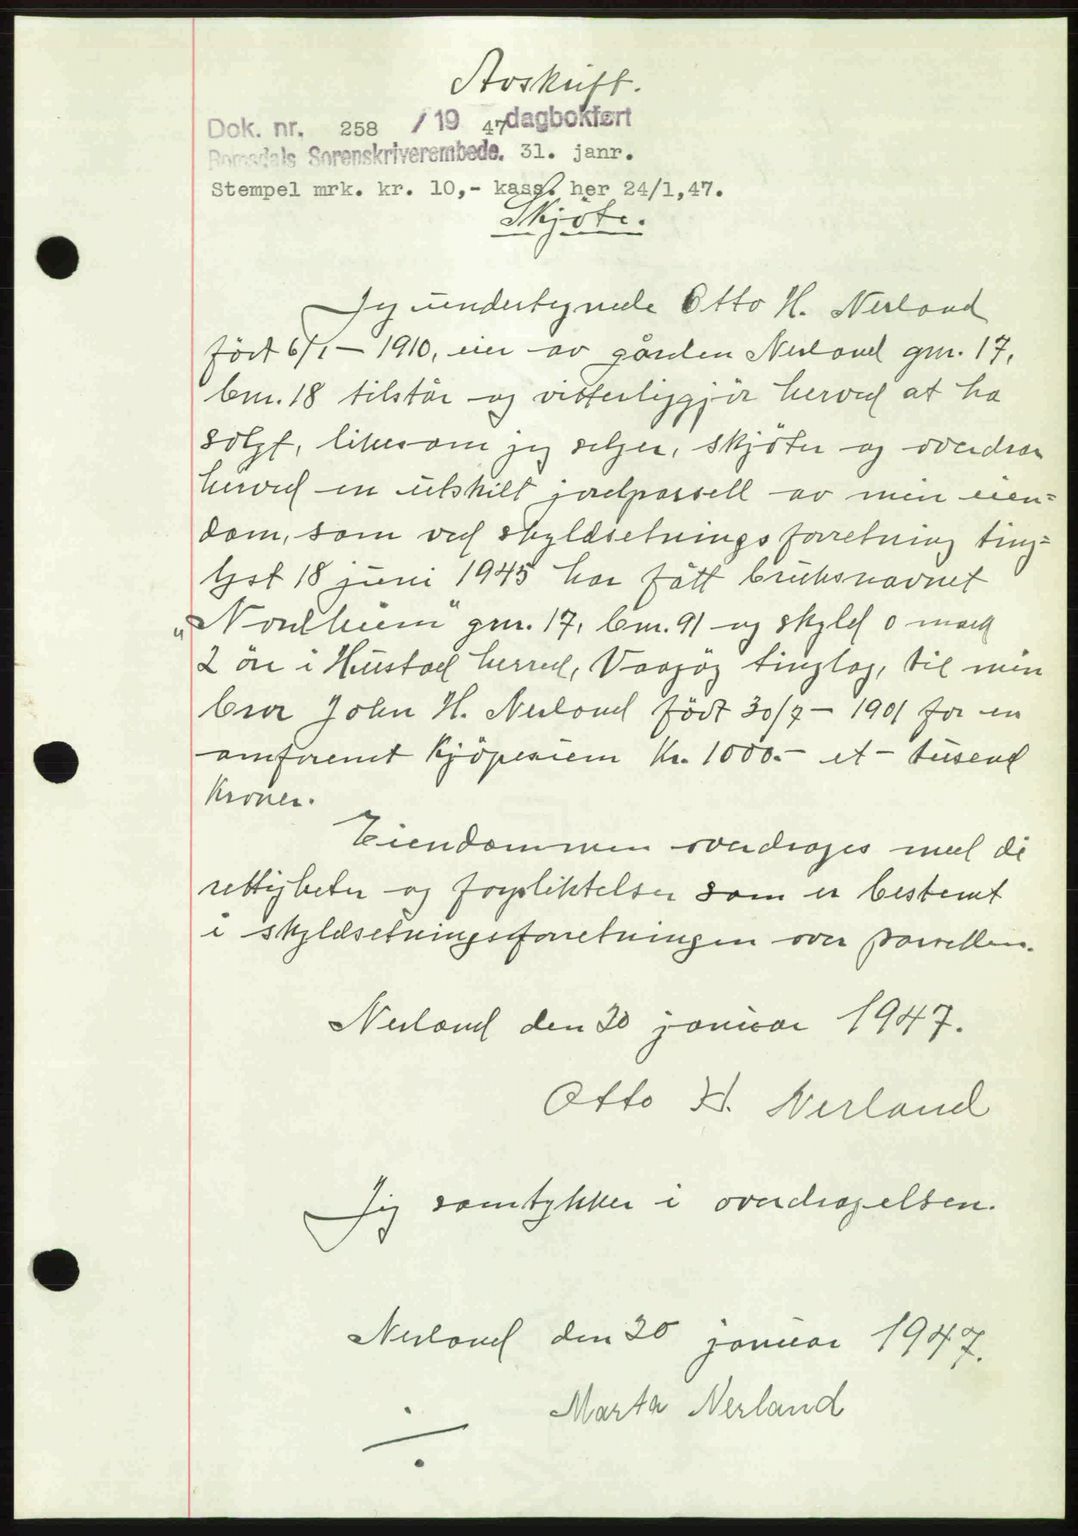 Avskrift.
Dok. nr. 258 / 19 47 dagbokført
Romsdals Sorenskriverembede. 31. janr.
Stempel mrk. kr. 10,- kass. her 24/1,47.
Skjöte.
Jeg undertegnede Otto H. Nerland
födt 6/1 – 1910, eier av gården Nerland gnr. 17,
bnr. 18 tilstår og vitterliggjör herved at ha
solgt, likesom jeg selger, skjöter og overdrar
herved en utskilt jordparsell av min eien=
dom, som ved skyldsetningsforretning ting=
lyst 18 juni 1945 har fått bruksnavnet
„Nordheim" gnr. 17, bnr. 91 og skyld 0 mark
2 öre i Hustad herred, Vaagöy tinglag, til min
bror John H. Nerland födt 30/7 – 1901 for en
omforenet kjöpesum kr. 1000.- et - tusend
kroner.
Eiendommen overdrages med de
rettigheter og forpliktelser som er bestemt
i skyldsetningsforretningen over parsellen.
Nerland den 20 januar 1947.
Otto H. Nerland
Jeg samtykker i overdragelsen.
Nerland den 20 januar 1947.
Marta Nerland